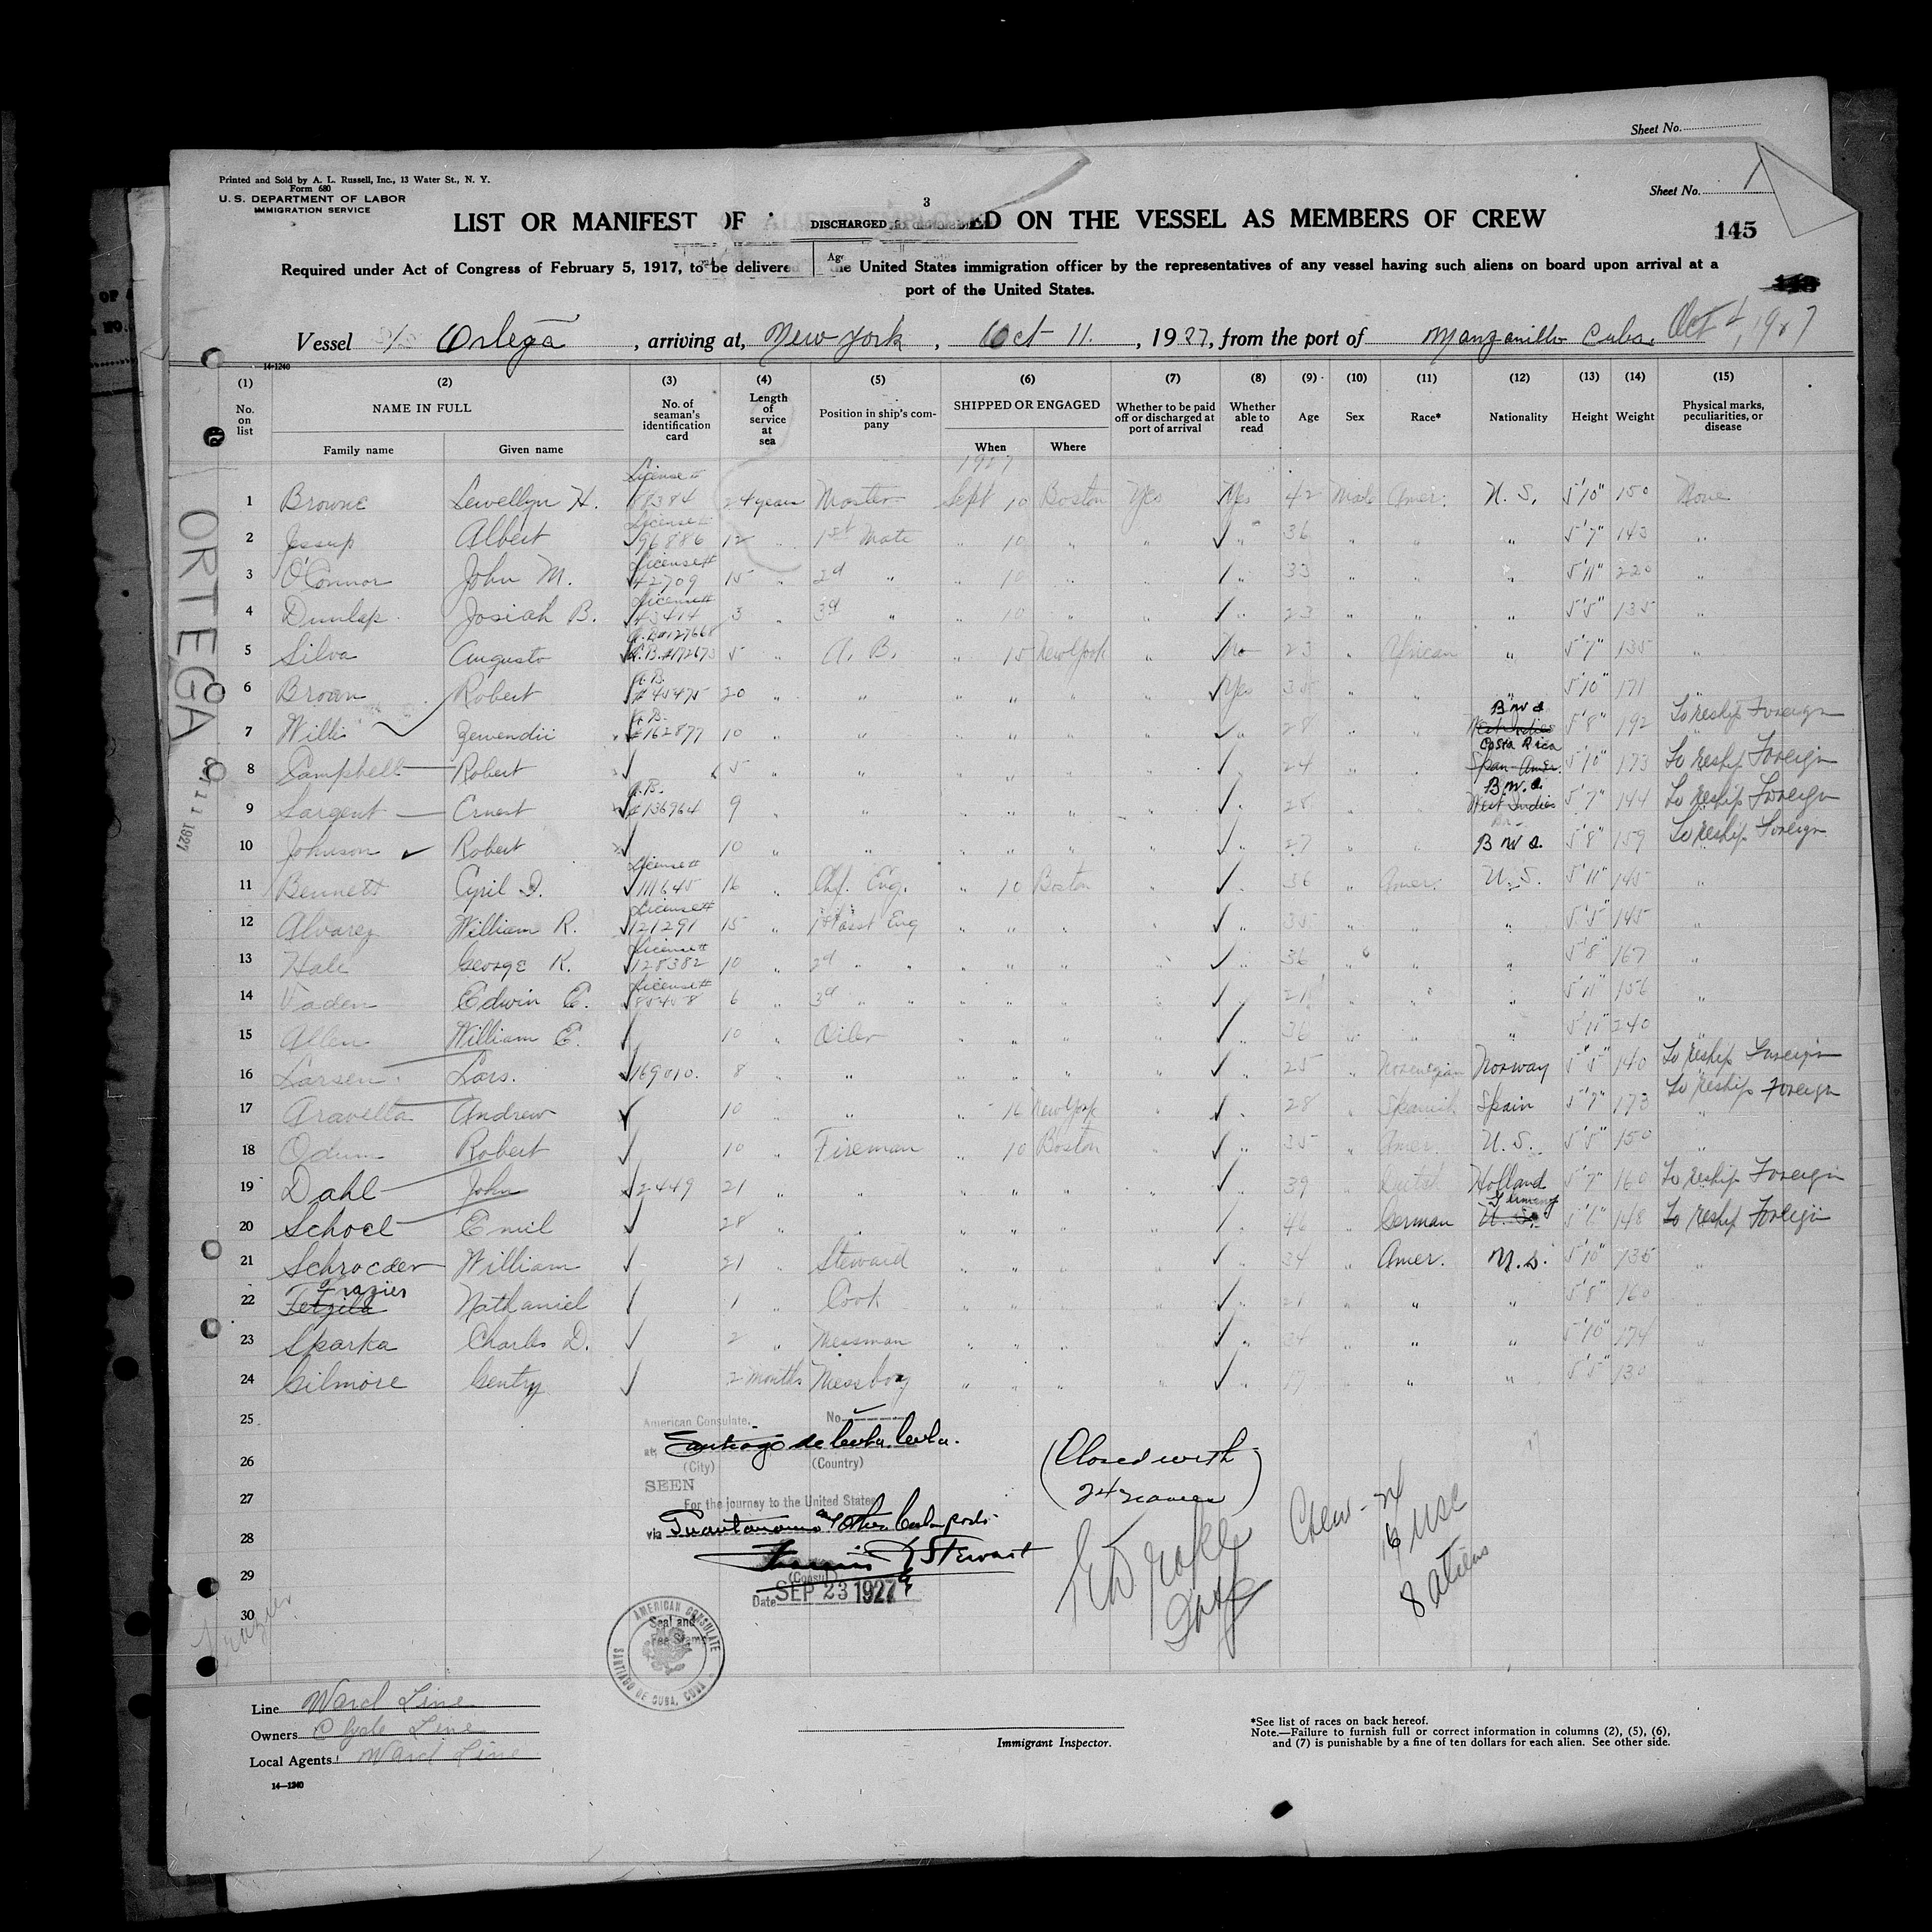 Sheet No.
Printed and Sold by A. L. Russell, Inc., 13 Water St., N. Y.
Form 680
U. S. DEPARTMENT OF LABOR
IMMIGRATION SERVICE
Sheet No. 1
3
LIST OR MANIFEST OF DISCHARGED ED ON THE VESSEL AS MEMBERS OF CREW
145
Required under Act of Congress of February 5, 1917, to be delivered Age the United States immigration officer by the representatives of any vessel having such aliens on board upon arrival at a
port of the United States.
Vessel S/S Ortega, arriving at, New York, Oct 11., 1927, from the port of Manzanillo Cuba. Oct 4, 1927
14-1240
(1) (2) (3) (4) (5) (6) (7) (8) (9) (10) (11) (12) (13) (14) (15)
No. on list NAME IN FULL No. of seaman's identification card Length of service at sea Position in ship's company SHIPPED OR ENGAGED Whether to be paid off or discharged at port of arrival Whether able to read Age Sex Race* Nationality Height Weight Physical marks, peculiarities, or disease
Family name Given name When Where
1927
1 Browne Lewellyn H. License # 88384 24 years Master Sept 10 Boston Yes Yes 42 Male Amer. U. S. 5'10" 150 None
2 Jessup Albert License 96886 12 " 1st Mate " 10 " " " 36 " " " 5'7" 143 "
3 O'Connor John M. License # 42709 15 " 2d " " 10 " " " 33 " " " 5'11" 220 "
4 Dunlap Josiah B. License # 43414 3 " 3d " " 10 " " " 23 " " " 5'5" 135 "
5 Silva Augusto A.B.#127668 A.B.#172673 5 " A. B. " 15 New York " No 23 " African " 5'7" 135 "
6 Brown Robert A.B. #45475 20 " " " " " " Yes 38 " " " 5'10" 171 "
7 Willi Zewendii A.B. #162877 10 " " " " " " " 28 " " B W I West Indies 5'8" 192 To Reship Foreign
8 Campbell Robert 5 " " " " " " " 24 " " Costa Rica Span-Amer. 5'10" 173 To Reship Foreign
9 Sargent Ernest A.B. #136964 9 " " " " " " " 28 " " B.W.I. West Indies 5'7" 144 To Reship Foreign
10 Johnson Robert 10 " " " " " " " 27 " " B W I. 5'8" 159 To Reship Foreign
11 Bennett Cyril D. License # 111645 16 " Chf. Eng. " 10 Boston " " 36 " Amer. U. S. 5'11" 145 "
12 Alvarez William R. License # 121291 15 " 1st Asst Eng " " " " " 35 " " " 5'5" 145 "
13 Hale George K. License # 128382 10 " 2d " " " " " " " 36 " " " 5'8" 167 "
14 Vaden Edwin E. License # 85458 6 " 3d " " " " " " " 21 " " " 5'11" 156 "
15 Allen William E. 10 " Oiler " " " " " 36 " " " 5'11" 240
16 Larsen Lars. 169010. 8 " " " " " " " 25 " Norwegian Norway 5'5" 140 To Reship Foreign
17 Aravella Andrew 10 " " " 16 New York " " 28 " Spanish Spain 5'7" 173 To Reship Foreign
18 Odum Robert 10 " Fireman " 10 Boston " " 35 " Amer. U. S. 5'5" 150 "
19 Dahl John 2449 21 " " " " " " " 39 " Dutch Holland 5'7" 160 To Reship Foreign
20 Schoel Emil 28 " " " " " " " 46 " German Germany U. S. 5'6" 148 To Reship Foreign
21 Schroeder William 21 " Steward " " " " " 34 " Amer. U. S. 5'10" 135 "
22 Frazier Nathaniel 1 " Cook " " " " " 21 " " " 5'8" 160 "
23 Sparka Charles D. 2 " Messman " " " " " 24 " " " 5'10" 174 "
24 Gilmore Gentry 2 Months Messboy " " " " " 17 " " " 5'5" 130 "
25
26
27
28
29
30
ORTEGA
11 1927
American Consulate, No.
at Santiago de Cuba. Cuba.
(City) (Country)
SEEN
For the journey to the United States
via Guantanamo & other Cuban ports
Francis R Stewart
(Consul)
Date SEP 23 1927
AMERICAN CONSULATE
Seal and
Fee Stamp
SANTIAGO DE CUBA, CUBA
(Closed with
24 names)
Crew - 24
16 USC
8 aliens
Frazier
Line Ward Line
Owners Clyde Line
Local Agents Ward Line
14-1240
Immigrant Inspector.
*See list of races on back hereof.
Note.—Failure to furnish full or correct information in columns (2), (5), (6),
and (7) is punishable by a fine of ten dollars for each alien. See other side.